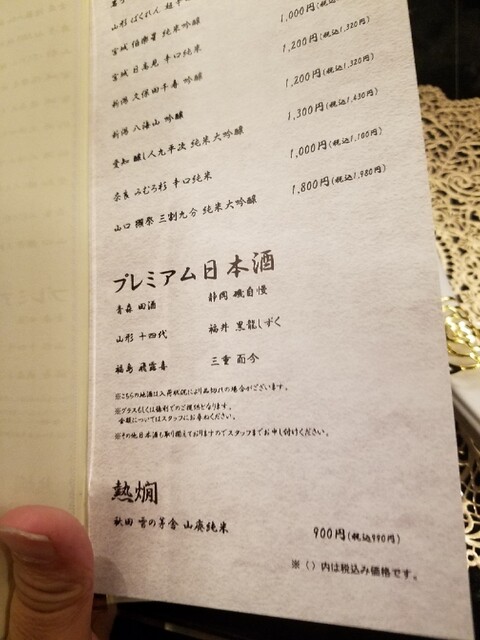 山形 ばくれん人 超辛
宮城 伯楽星 純米吟醸 1,000円(税込1,100円)
宮城 日高見 辛口純米 1,200円(税込1,320円)
新潟 久保田千寿 吟醸 1,200円(税込1,320円)
新潟 八海山 吟醸 1,300円(税込1,430円)
愛知 醸し人九平次 純米大吟醸 1,000円(税込1,100円)
奈良 みむろ杉 辛口純米 1,800円(税込1,980円)
山口 獺祭 三割九分 純米大吟醸
プレミアム日本酒
青森 田酒 静岡 磯自慢
山形 十四代 福井 黒龍しずく
福島 飛露喜 三重 而今
※こちらの地酒は入荷状況により品切れの場合がございます。
※グラスもしくは徳利でのご提供となります。
金額についてはスタッフにお尋ねください。
※その他日本酒も取り揃えておりますのでスタッフまでお申し付けください。
熱燗
秋田 雪の茅舎 山廃純米 900円(税込990円)
※()内は税込み価格です。